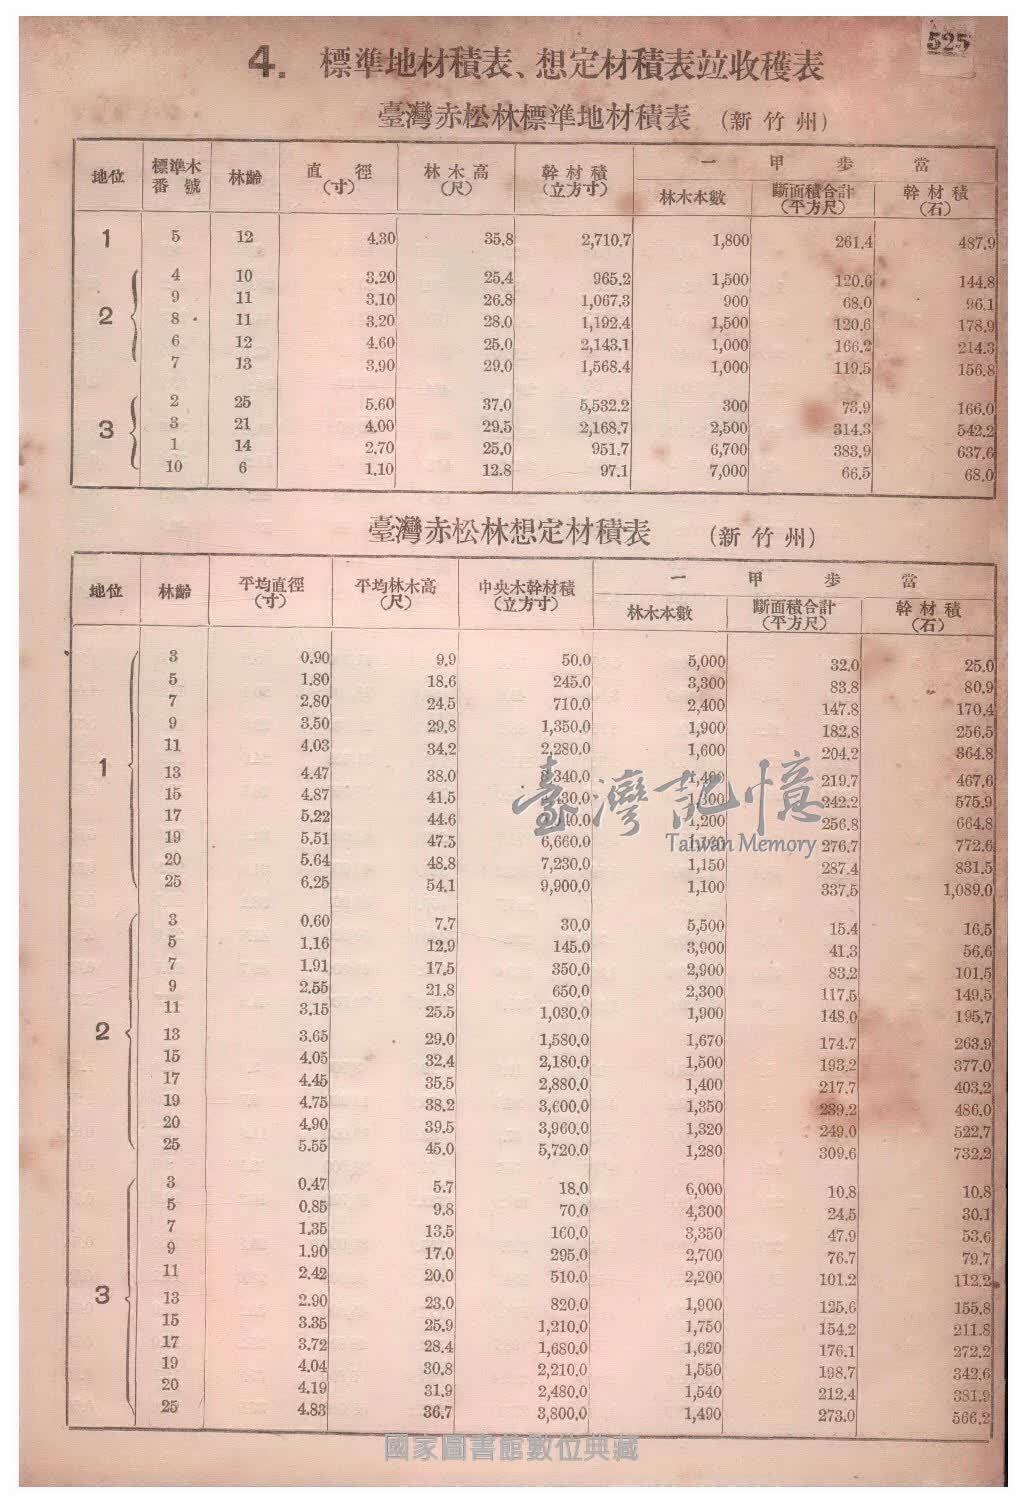 525
4. 標準地材積表、想定材積表竝收穫表
臺灣赤松林標準地材積表 (新竹州)
地位 標準木番號 林齡 直徑(寸) 林木高(尺) 幹材積(立方寸) 一甲步當
林木本數 斷面積合計(平方尺) 幹材積(石)
1 5 12 4.30 35.8 2,710.7 1,800 261.4 487.9
4 10 3.20 25.4 965.2 1,500 120.6 144.8
9 11 3.10 26.8 1,067.3 900 68.0 96.1
2 8 11 3.20 28.0 1,192.4 1,500 120.6 178.9
6 12 4.60 25.0 2,143.1 1,000 166.2 214.3
7 13 3.90 29.0 1,568.4 1,000 119.5 156.8
2 25 5.60 37.0 5,532.2 300 73.9 166.0
3 3 21 4.00 29.5 2,168.7 2,500 314.3 542.2
1 14 2.70 25.0 951.7 6,700 383.9 637.6
10 6 1.10 12.8 97.1 7,000 66.5 68.0
臺灣赤松林想定材積表 (新竹州)
地位 林齡 平均直徑(寸) 平均林木高(尺) 中央木幹材積(立方寸) 一甲步當
林木本數 斷面積合計(平方尺) 幹材積(石)
3 0.90 9.9 50.0 5,000 32.0 25.0
5 1.80 18.6 245.0 3,300 83.8 80.9
7 2.80 24.5 710.0 2,400 147.8 170.4
9 3.50 29.8 1,350.0 1,900 182.8 256.5
11 4.03 34.2 2,280.0 1,600 204.2 364.8
1 13 4.47 38.0 3,340.0 1,400 219.7 467.6
15 4.87 41.5 1,300 242.2 575.9
17 5.22 44.6 1,200 256.8 664.8
19 5.51 47.5 6,660.0 276.7 772.6
20 5.64 48.8 7,230.0 1,150 287.4 831.5
25 6.25 54.1 9,900.0 1,100 337.5 1,089.0
臺灣記憶
Taiwan Memory
3 0.60 7.7 30.0 5,500 15.4 16.5
5 1.16 12.9 145.0 3,900 41.3 56.6
7 1.91 17.5 350.0 2,900 83.2 101.5
9 2.55 21.8 650.0 2,300 117.5 149.5
11 3.15 25.5 1,030.0 1,900 148.0 195.7
2 13 3.65 29.0 1,580.0 1,670 174.7 263.9
15 4.05 32.4 2,180.0 1,500 193.2 377.0
17 4.45 35.5 2,880.0 1,400 217.7 403.2
19 4.75 38.2 3,600.0 1,350 239.2 486.0
20 4.90 39.5 3,960.0 1,320 249.0 522.7
25 5.55 45.0 5,720.0 1,280 309.6 732.2
3 0.47 5.7 18.0 6,000 10.8 10.8
5 0.85 9.8 70.0 4,300 24.5 30.1
7 1.35 13.5 160.0 3,350 47.9 53.6
9 1.90 17.0 295.0 2,700 76.7 79.7
11 2.42 20.0 510.0 2,200 101.2 112.2
3 13 2.90 23.0 820.0 1,900 125.6 155.8
15 3.35 25.9 1,210.0 1,750 154.2 211.8
17 3.72 28.4 1,680.0 1,620 176.1 272.2
19 4.04 30.8 2,210.0 1,550 198.7 342.6
20 4.19 31.9 2,480.0 1,540 212.4 381.9
25 4.83 36.7 3,800.0 1,490 273.0 566.2
國家圖書館數位典藏